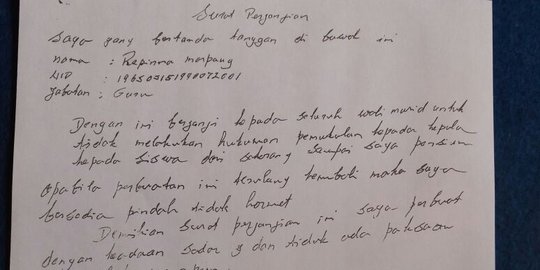 Surat Perjanjian
Saya yang bertanda tanggan di bawah ini
nama : Rapinma marpaung
NIP : 196509151990072001
Jabatan : Guru
Dengan ini berjanji kepada seluruh wali murid untuk
tidak melakukan hukuman pemukulan kepada kepala
kepada siswa dari sekarang sampai saya pensiun
apabila perbuatan ini terulang kembali maka saya
bersedia pindah tidak hormat
Demikian surat perjanjian ini saya perbuat
dengan keadaan sadar dan tidak ada paksaan